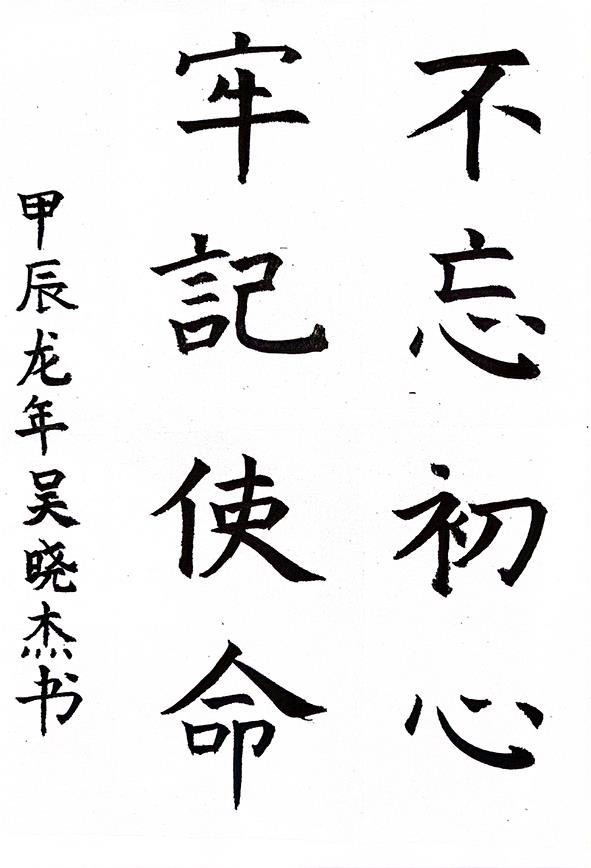 不忘初心
牢記使命
甲辰龙年吴晓杰书